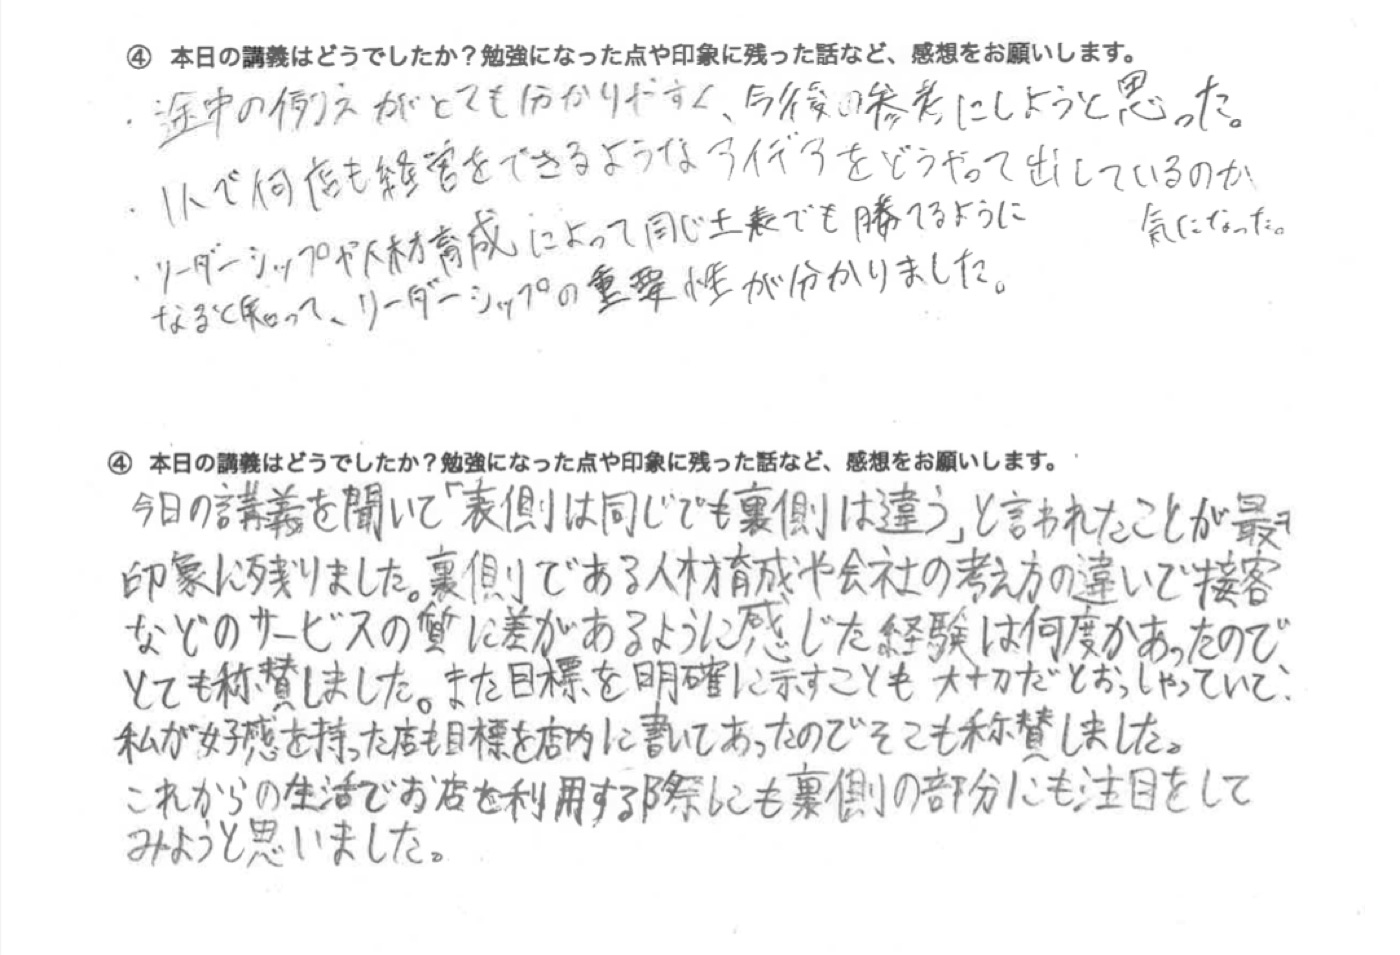 ④ 本日の講義はどうでしたか？勉強になった点や印象に残った話など、感想をお願いします。
・途中の例えがとても分かりやすく、今後の参考にしようと思った。
・1人で何店も経営をできるようなアイデアをどうやって出しているのか
気になった。
・リーダーシップや人材育成によって同じ土表でも勝てるように
なると知って、リーダーシップの重要性が分かりました。
④ 本日の講義はどうでしたか？勉強になった点や印象に残った話など、感想をお願いします。
今日の講義を聞いて「表側は同じでも裏側は違う」と言われたことが最も
印象に残りました。裏側である人材育成や会社の考え方の違いで接客
などのサービスの質に差があるように感じた経験は何度かあったので
とても称賛しました。また目標を明確に示すことも大切だとおっしゃっていて、
私が好感を持った店も目標を店内に書いてあったのでそこも称賛しました。
これからの生活でお店を利用する際にも裏側の部分にも注目をして
みようと思いました。